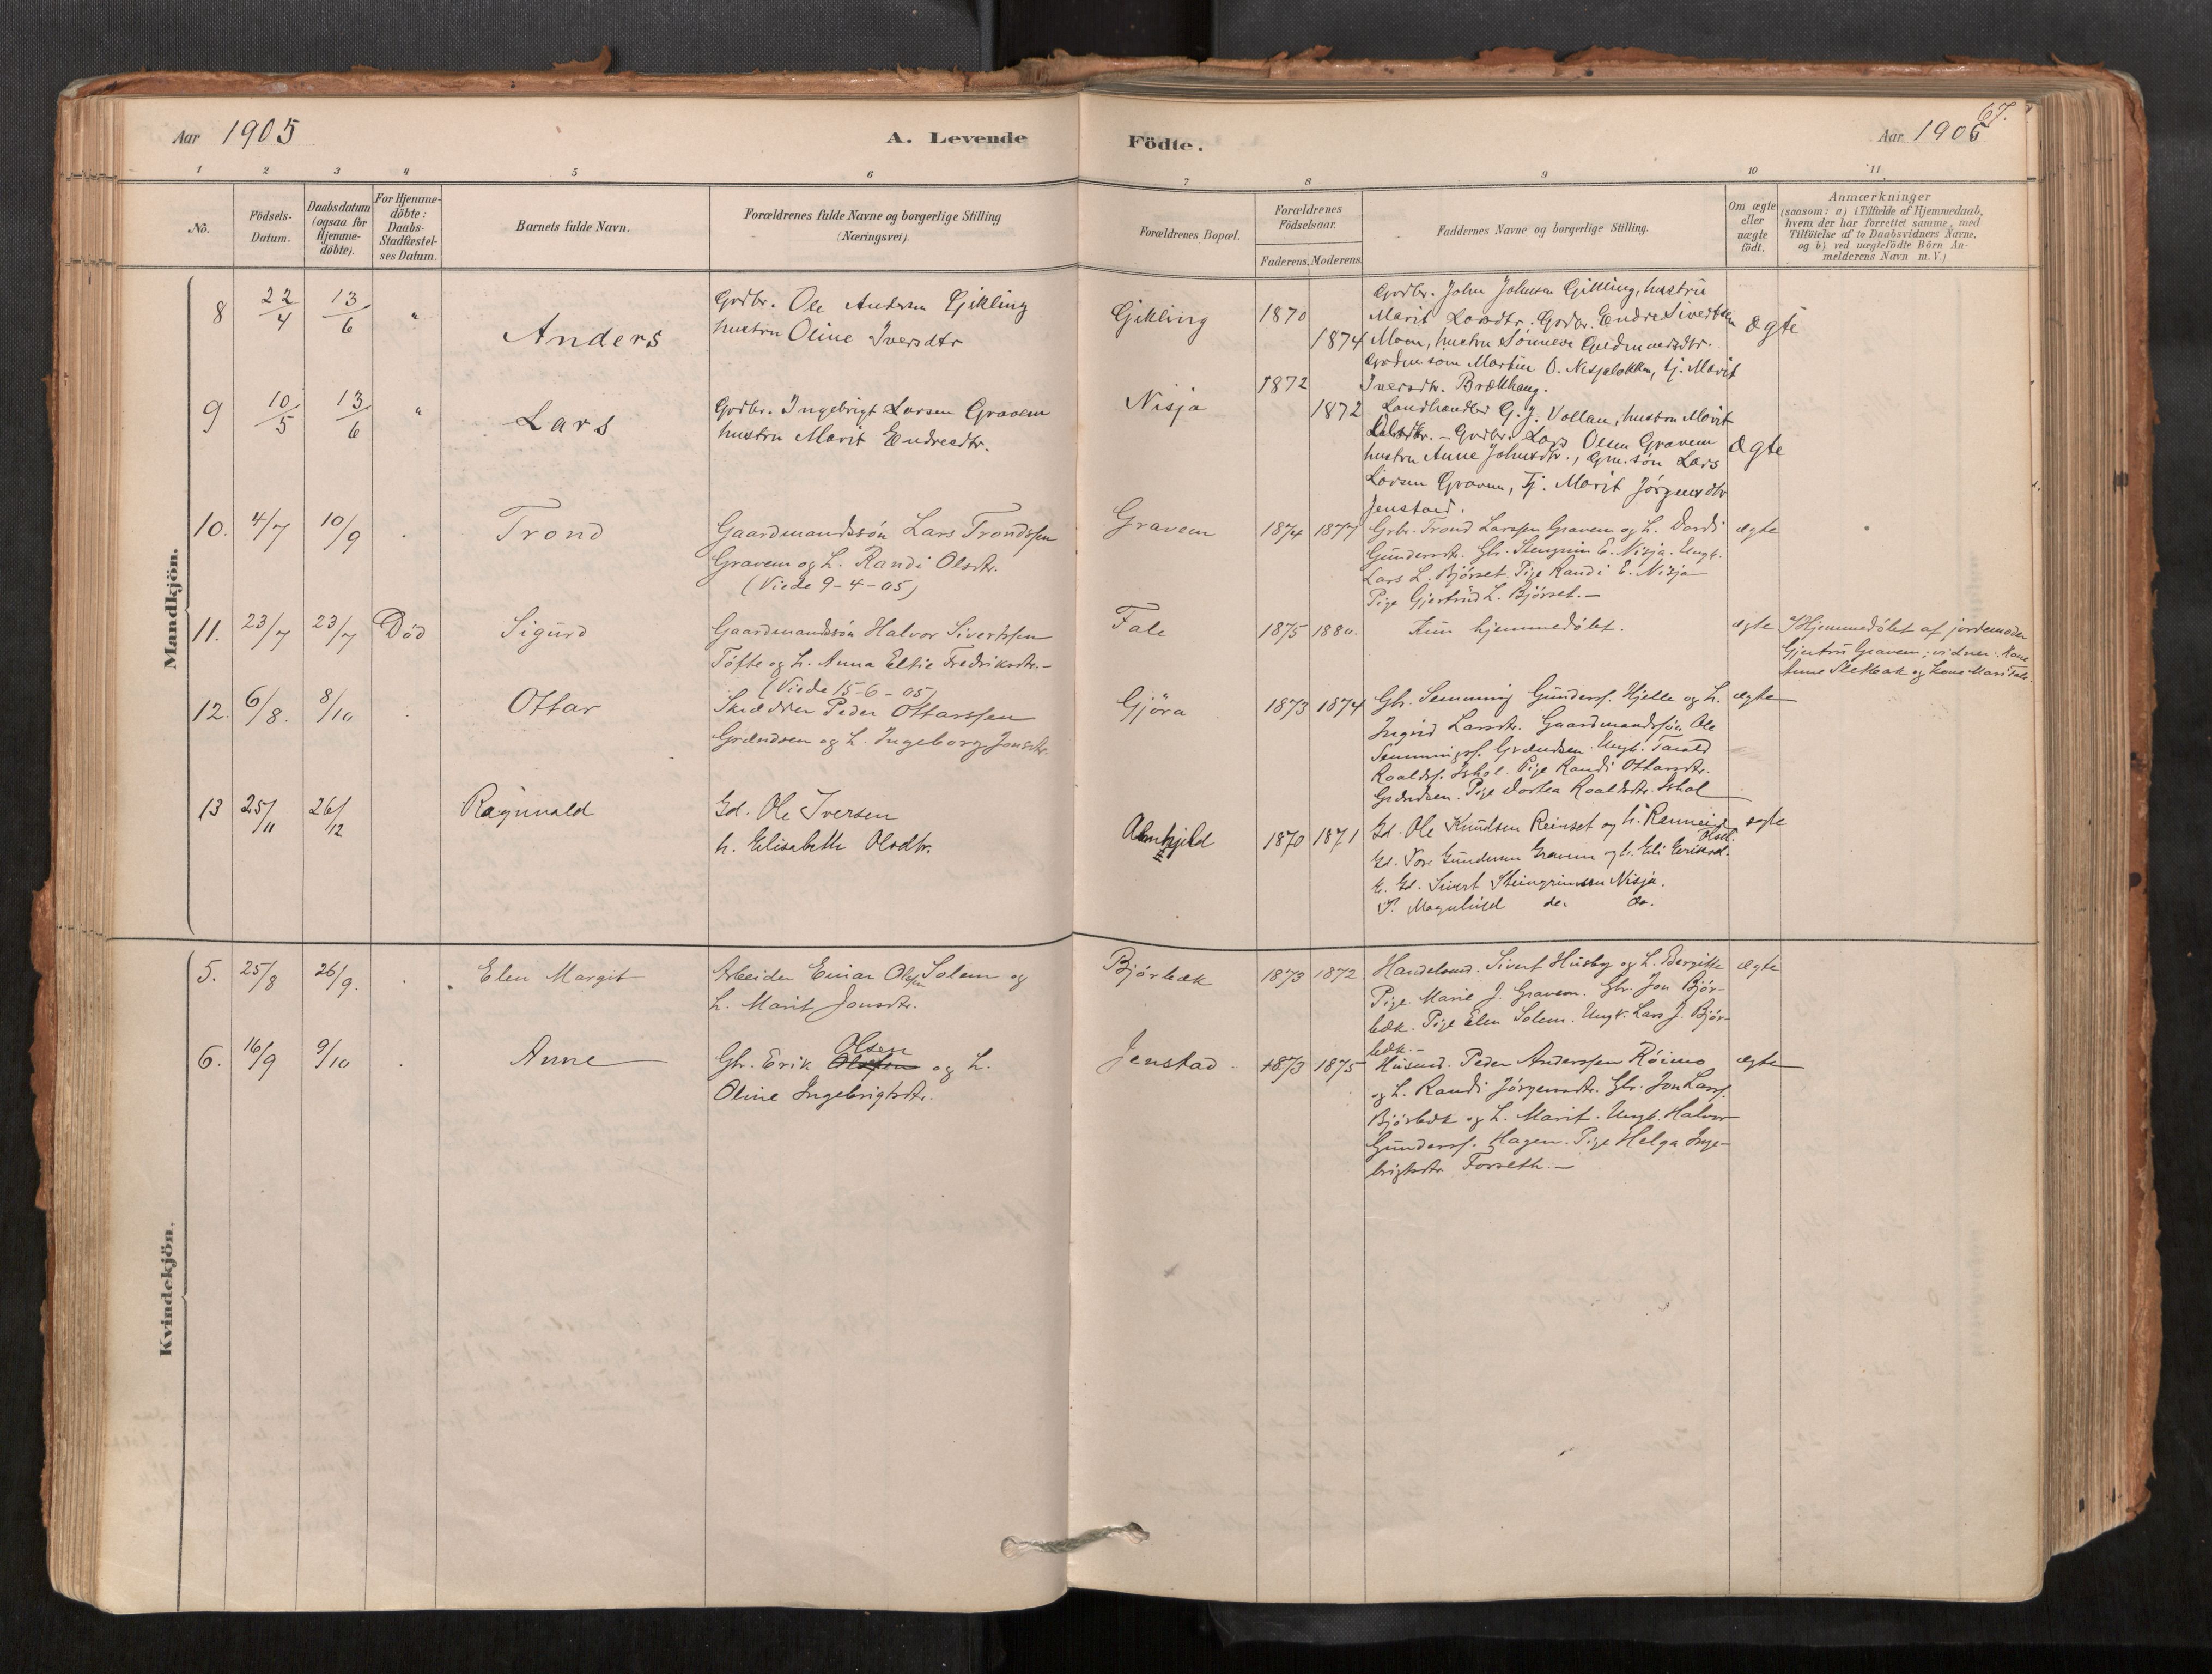 67.
Aar 1905
A. Levende
Födte.
Aar 1905
1 2 3 4 5 6 7 8 9 10 11
No.
Födsels-
Datum.
Daabsdatum
(ogsaa for
Hjemme-
döbte).
For Hjemme-
döbte:
Daabs-
Stadfæstel-
ses Datum.
Barnets fulde Navn.
Forældrenes fulde Navne og borgerlige Stilling
(Næringsvei).
Forældrenes Bopæl.
Forældrenes
Födselsaar.
Faderens. Moderens.
Faddernes Navne og borgerlige Stilling.
Om ægte
eller
uægte
födt.
Anmærkninger
(saasom: a) i Tilfælde af Hjemmedaab,
hvem der har forrettet samme, med
Tilföielse af to Daabsvidners Navne,
og b) ved uægtefödte Börn An-
melderens Navn m. V.)
Mandkjön.
8 22/4 13/6 " Anders
Grdbr. Ole Andersen Gjikling
hustru Oline Iversdtr
Gjikling 1870 1874
Grdbr. John Johnsen Gikling, hustru
Marit Larsdtr. Grdbr. Endre Sivertsen
Moen, hustru Sönneva
Martin O. tj. Marit
Iversdtr. Brækhaug.
ægte
9 10/5 13/6 " Lars
Grdbr. Ingebrigt Larsen Gravem
hustru Marit Endresdtr.
Nisja 1872 1872
Landhandler G. J. Vollan, hustru Marit
Olsdtr. – Grdbr. Lars Olsen Gravem
hustru Anne Johnsdtr., Gm.sön Lars
Larsen Gravem, Tj. Marit Jörgensdtr
Jenstad.
ægte
10. 4/7 10/9 . Trond
Gaardmandssön Lars Trondssen
Gravem og h. Randi Olsdtr.
(Viede 9-4-05)
Gravem 1874 1877
Grbr. Trond Larssen Gravem og h. Dordi
Gundersdtr. Gbr. Stengrim E. Nisja. Ungk.
Lars L. Bjørset. Pige Randi E. Nisja
Pige Gjertrud L. Bjørset. –
ægte
11. 23/7 23/7 Död Sigurd
Gaardmandssön Halvor Sivertssen
Tøfte og h. Anna Eltie Fredriksdtr. –
(Viede 15-6-05)
Fale 1875 1880.
Kun hjemmedöbt.
ægte
Hjemmedöbt af jordemoder
Gjertru Gravem; vidner: Kone
Anne og Kone Mari Fale.
12. 6/8. 8/10 . Ottar
Skrædder Peder Ottarssen
Grændsen og h. Ingeborg Jonsdtr.
Gjöra 1873 1874
Gbr. Semming Gunderss. Hjelle og h.
Ingrid Larsdtr. Gaardmandssön Ole
Semmingss. Grændsen. Ungk. Tarald
Roaldss. Ishol. Pige Randi Ottarsdtr.
Grændsen. Pige Dortea Roaldsdtr. Ishol
ægte
13 25/11 26/12 Ragnvald
Gd. Ole Iversen
h. Elisabeth Olsdtr.
Almskjeld 1870 1871
Gd. Ole Knudsen Reinset og h. Rannei
Olsd.
Gd. Tore Gundersen Gravem og h. Eli Eriksd.
E. Gd. Sivert Steingrimsen Nisja.
P. Magnhild do. do.
ægte
Kvindekjön.
5. 25/8 26/9. . Elen Margit
Arbeider Einar Olssen Solem og
h. Marit Jonsdtr.
Bjørbæk 1873 1872.
Handelsmd. Sivert Husby og h. Bergitte
Pige Marie J. Gravem. Gbr. Jon Bjør-
bæk. Pige Elen Solem. Ungk. Lars J. Bjør-
bæk. –
ægte
6. 16/9 9/10 . Anne
Olsen
Gbr. Erik Olssen og h.
Oline Ingebrigtsdtr.
Jenstad 1873 1875
Husmd. Peder Anderssen Röimo
og h. Randi Jörgensdtr. Gbr. Jon Larss.
Bjørbæk og h. Marit. Ungk. Halvor
Gunderss. Hagen. Pige Helga Inge-
brigtsdtr Forseth. –
ægte